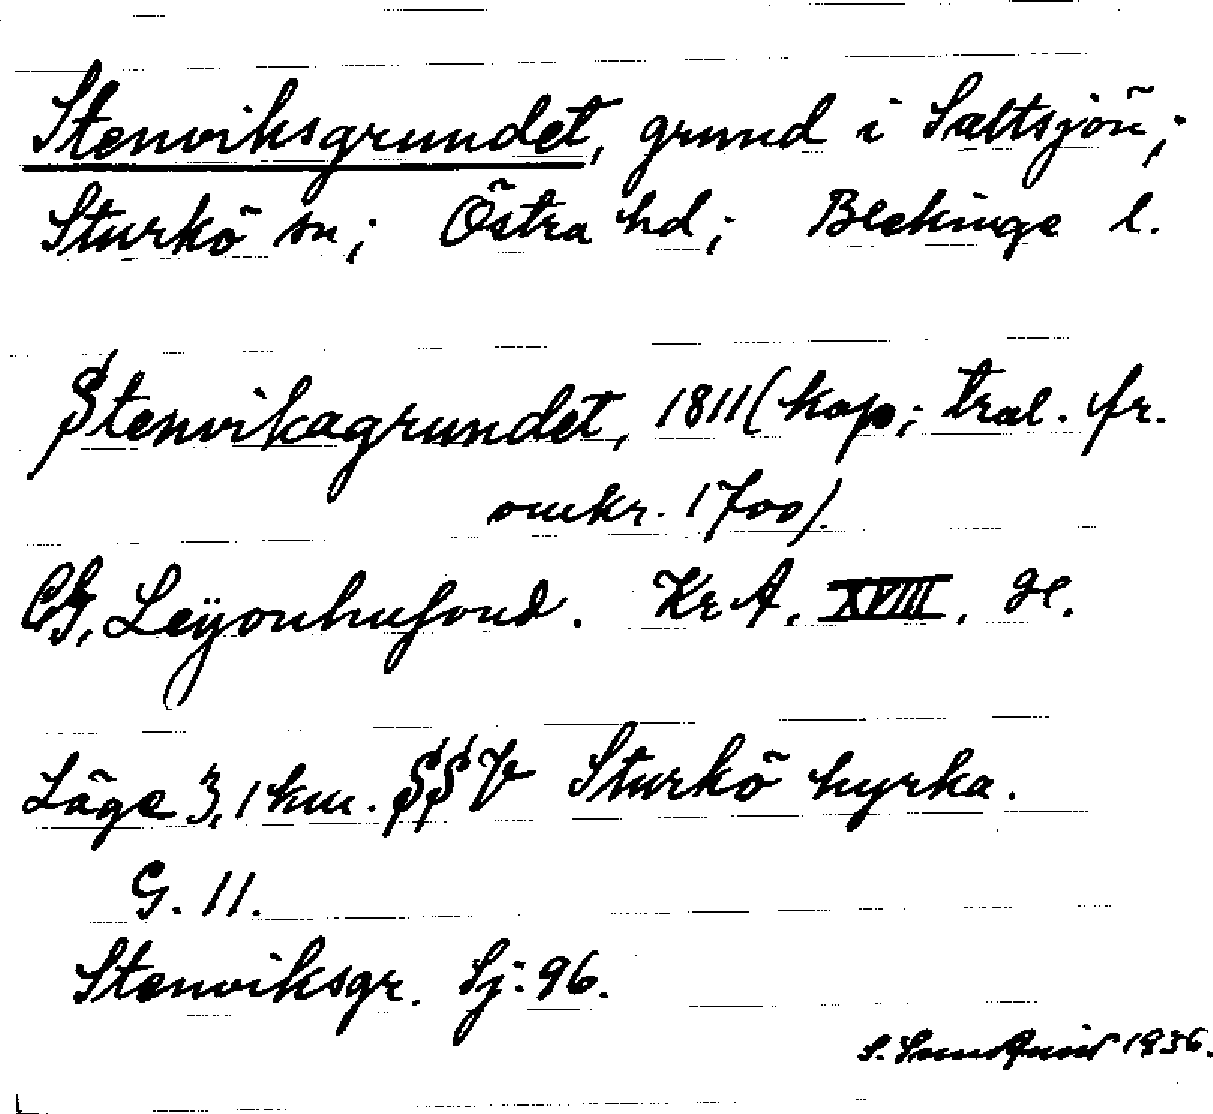 Stenviksgrundet, grund i Saltsjön;
Sturkö sn; Östra hd; Blekinge l.
Stenvikagrundet, 1811 (kop; tral. fr.
omkr. 1700).
CG, Leÿonhufvud. KrA. XVIII. 9e.
Läge 3,1 km. SSV Sturkö kyrka.
G. 11.
Stenviksgr. Sj: 96.
S. 1936.